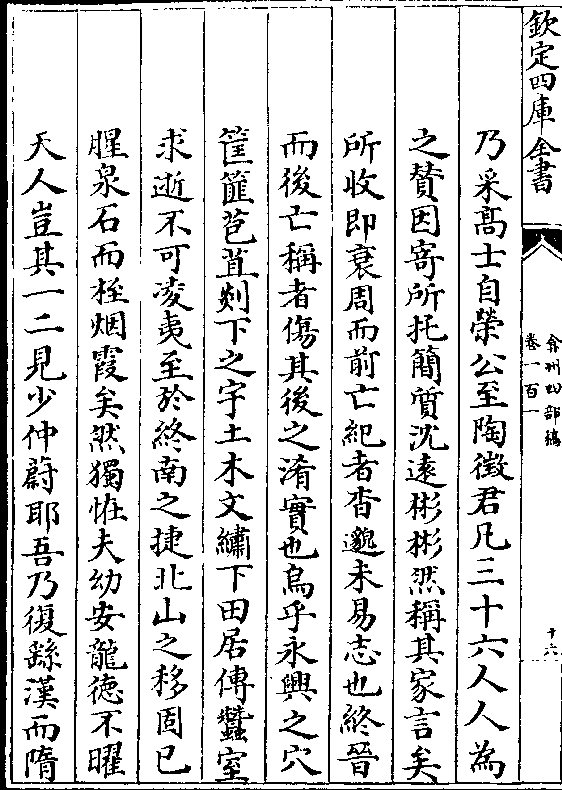 欽定四庫全書
弇州四部稿
卷一百一
十六
乃采髙士自榮公至陶徵君凡三十六人人為
之贊因寄所托簡質沈遠彬彬然稱其家言矣
所收即衰周而前亡紀者杳邈未易志也終晉
而後亡稱者傷其後之淆實也烏乎永興之穴
筐篚苞苴剡下之宇土木文繡下田居傳蠶室
求逝不可凌夷至於終南之捷北山之移固已
腥泉石而桎烟霞矣然獨恠夫幼安龍徳不曜
天人豈其一二見少仲蔚耶吾乃復繇漢而隋